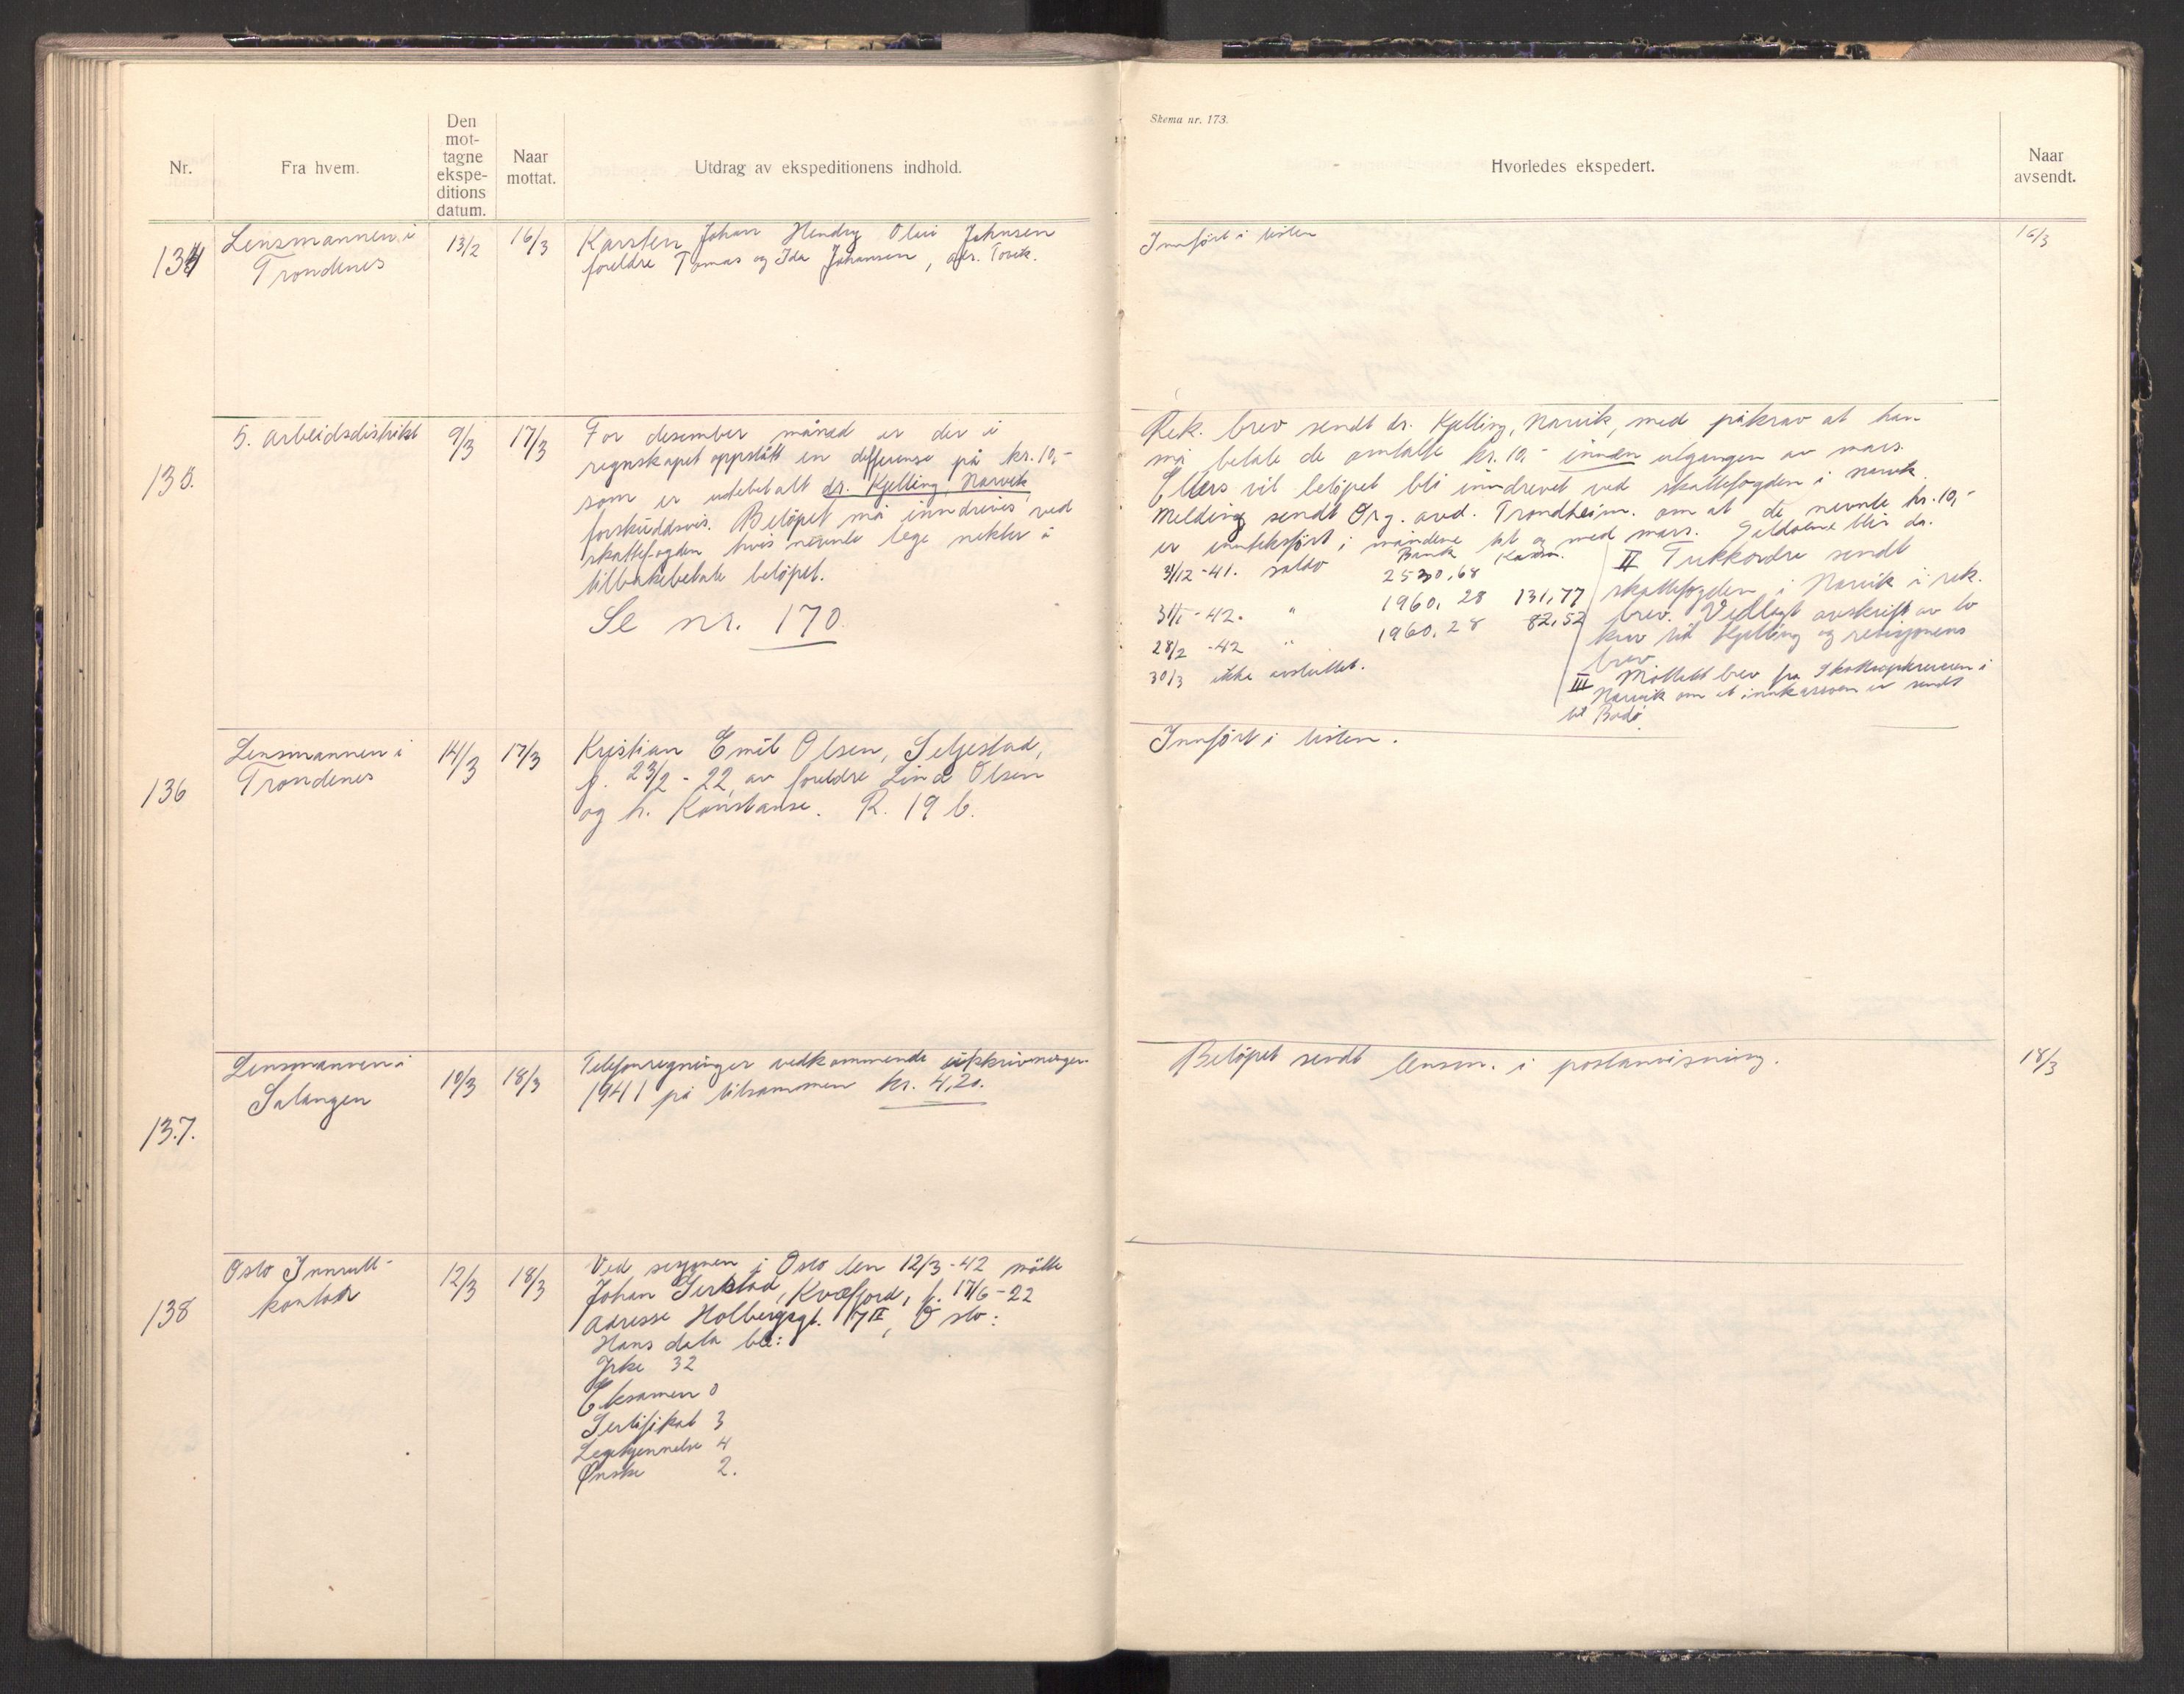 Nr.
Fra hvem.
Den
mot-
tagne
ekspe-
ditions
datum.
Naar
mottat.
Utdrag av ekspeditionens indhold.
134
Lensmannen i
Trondenes
13/2
16/3
Karsten Johan Hendry Olui Johnsen
foreldre Tomas og Ida Johansen, adr. Torvik.
135.
5. arbeidsdistrikt
9/3
17/3
For desember månad er der i
regnskapet oppstått en differense på kr. 10,-
som er utbetalt dr. Kjelling, Narvik
forskuddsvis. Belöpet må inndrives ved
skattefogden hvis nevnte lege nekter å
tilbakebetale belöpet.
Se nr. 170.
136
Lensmannen i
Trondenes
14/3
17/3
Kristian Emil Olsen, Seljestad,
f. 23/2 - 22, av foreldre Lind Olsen
og h. Konstanse. R. 19 b.
137.
Lensmannen i
Salangen
10/3
18/3
Telefonregninger vedkommende utskrivninger
1941 på tilsammen kr. 4,20.
138
Oslo Innrull-
kontor
12/3
18/3
Ved sesjonen i Oslo den 12/3-42 mötte
Johan Serstad, Kvæfjord, f. 17/6-22
adresse Holbergsgt. 17 II, Oslo:
Hans data ble:
Yrke 32
Eksamen 0
Sertifikat 3
Legekjennelse 4
Ønske 2.
Skema nr. 173.
Hvorledes ekspedert.
Naar
avsendt.
Innfört i listen
16/3
Rek. brev sendt dr. Kjelling, Narvik, med påkrav at han
må betale de omtalte kr. 10,- innen utgangen av mars.
Ellers vil belöpet bli inndrevet ved skattefogden i Narvik
Melding sendt Org. avd. Trondheim. om at de nevnte kr. 10,-
er inntektsfört i månedene til og med mars. Saldoene blir da.
Bank Kassa.
31/12-41. saldo 2530,68
31/1-42. " 1960,28 131,77
28/2-42 " 1960,28 82,52
30/3 ikke avsluttet.
II Trekkordre sendt
skattefogden i Narvik i rek.
brev. Vedlagt avskrift av to
brev til Kjelling og revisjonens
brev
III Mottatt brev fra Skatteopkreveren i
Narvik om at innkassoen er sendt
til Bodö.
Innfört i listen.
Belöpet sendt lensm. i postanvisning.
18/3